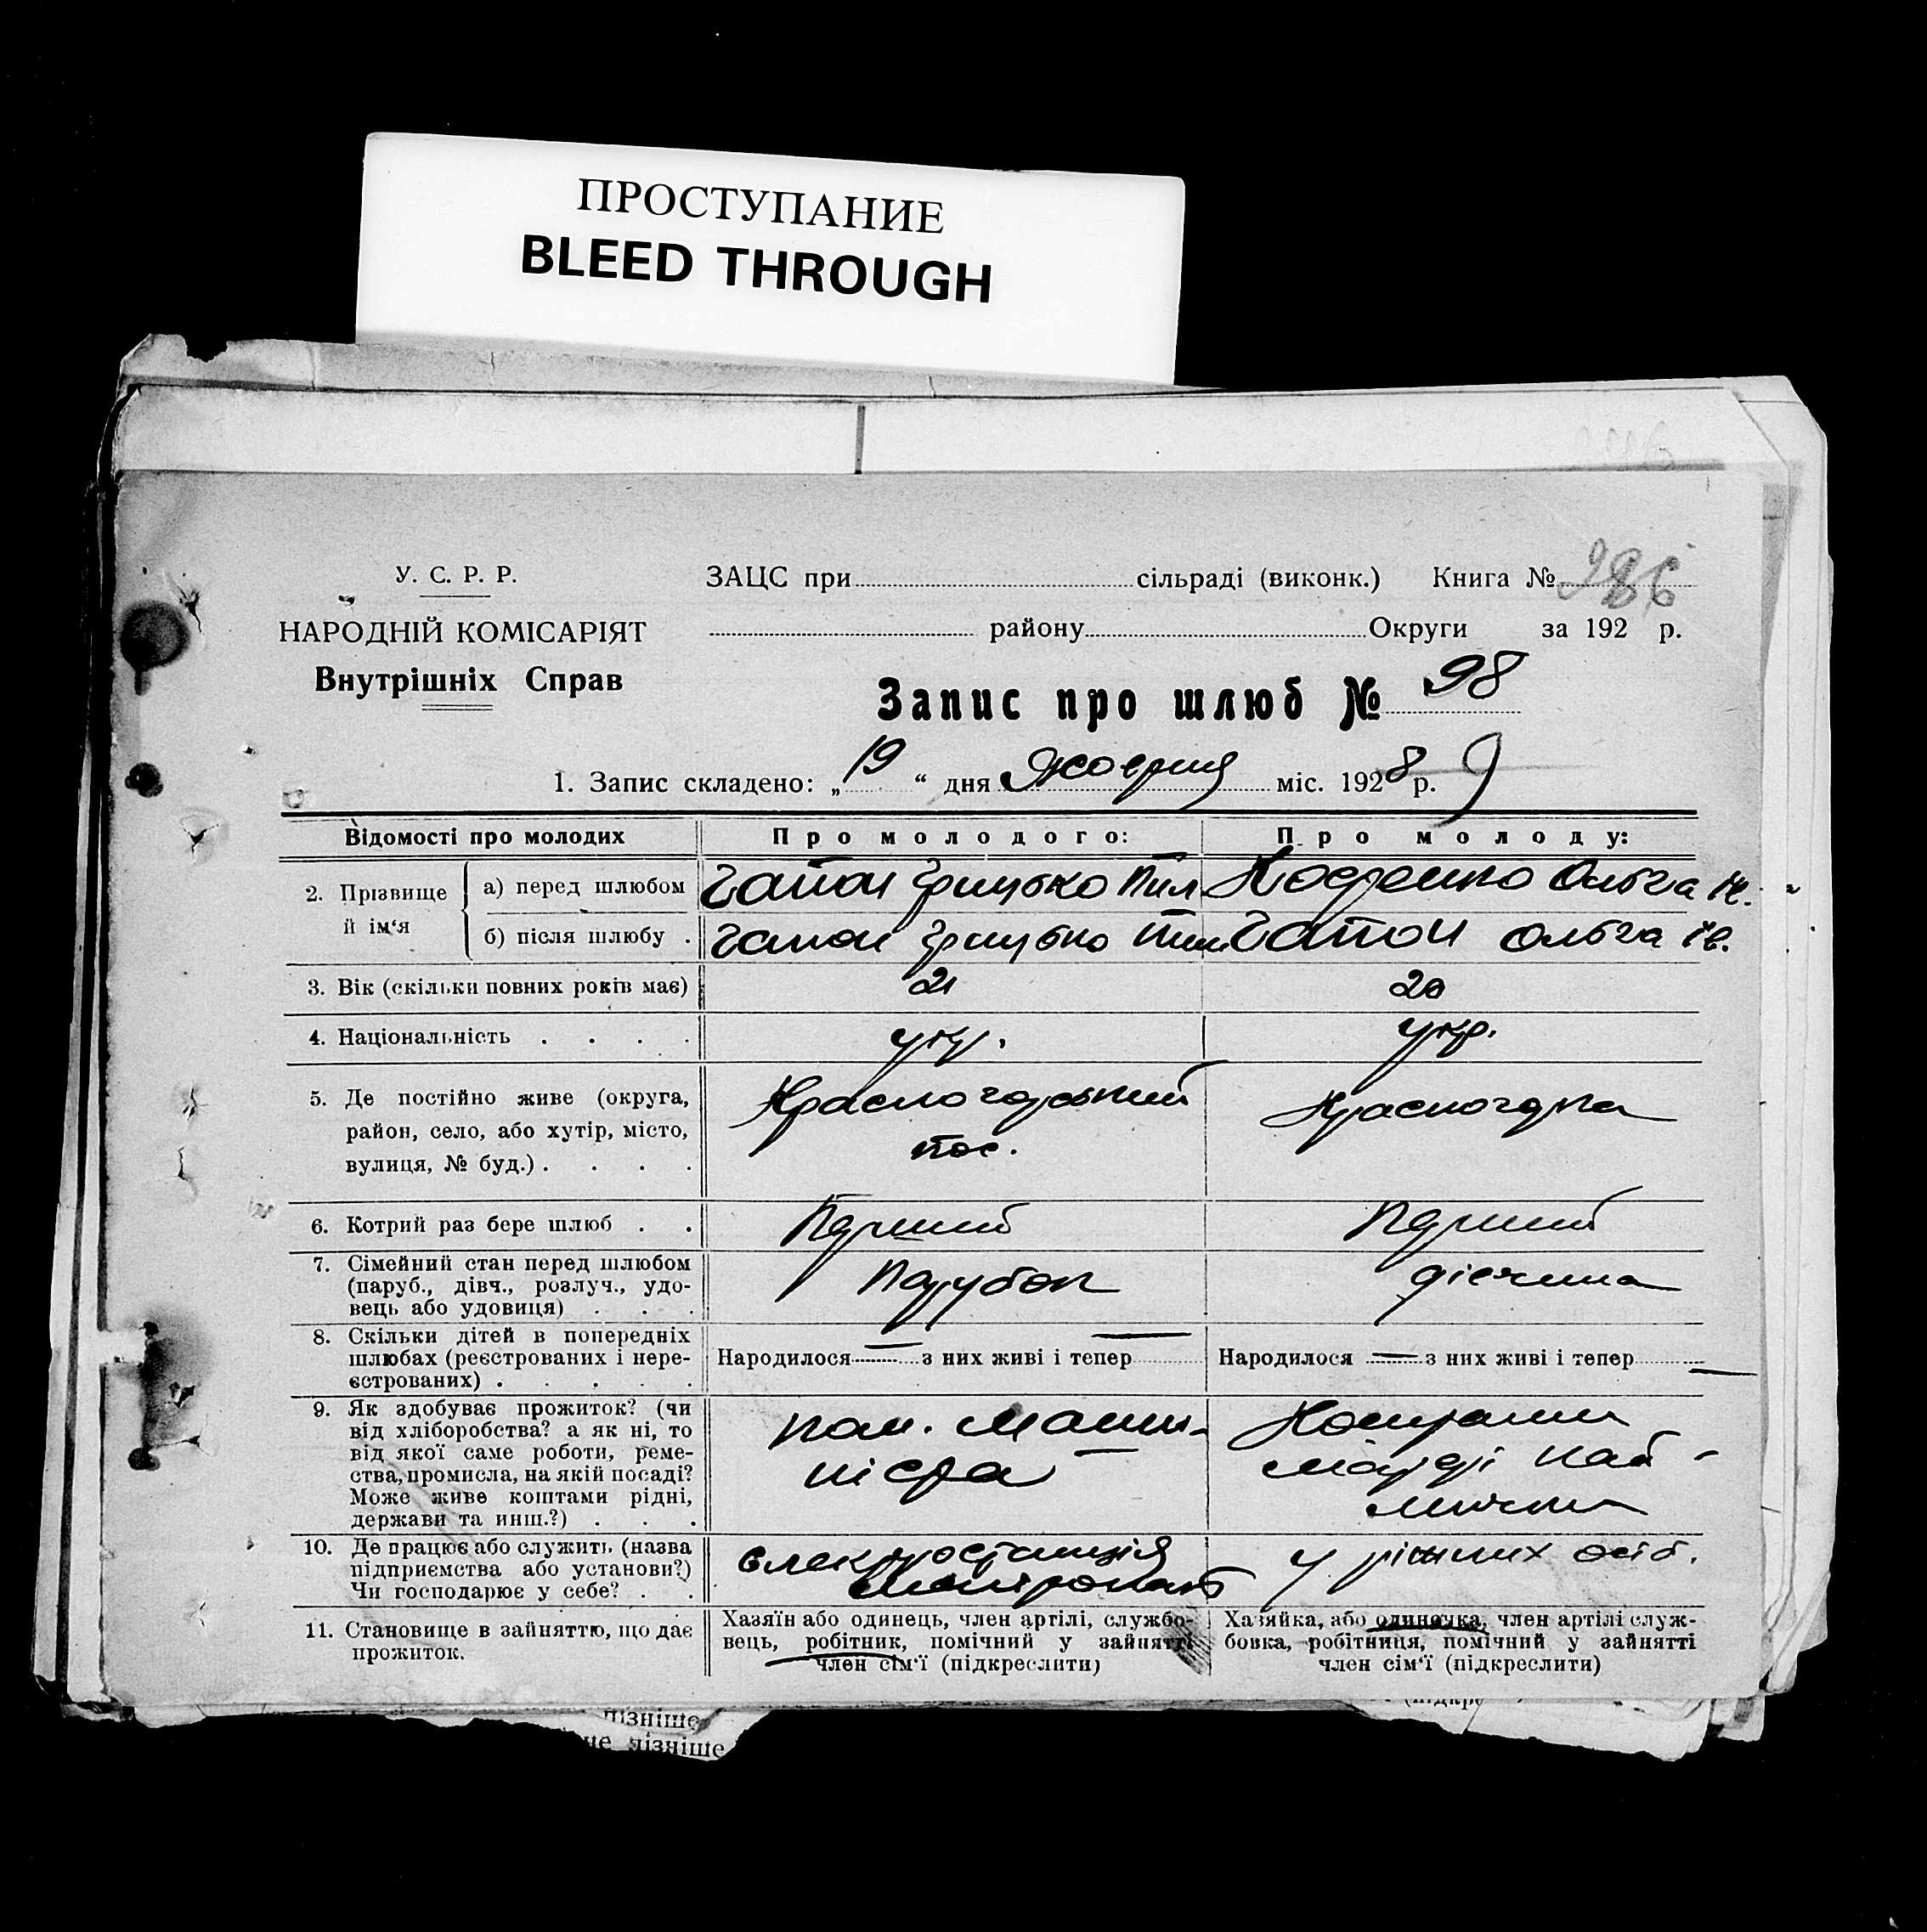 ПРОСТУПАНИЕ
BLEED THROUGH
У. С. Р. Р.
ЗАЦС при сільраді (виконк.) Книга № 286
НАРОДНІЙ КОМІСАРІЯТ
району Округи за 192 р.
Внутрішніх Справ
Запис про шлюб № 98
1. Запис складено: „19“ дня Жовтня міс. 1928 р. 9
Відомості про молодих
Про молодого:
Про молоду:
2. Прізвище й ім‘я
а) перед шлюбом
Гапон Грицько Пил
Ольга Ів.
б) після шлюбу .
Гапон Грицько Пил
Гапон Ольга Ів.
3. Вік (скільки повних років має)
21
20
4. Національність . . . .
укр.
укр.
5. Де постійно живе (округа,
район, село, або хутір, місто,
вулиця, № буд.) . . . .
пос.
6. Котрий раз бере шлюб . .
Перший
Перший
7. Сімейний стан перед шлюбом
(паруб., дівч., розлуч., удо-
вець або удовиця) . . .
Парубок
дівчина
8. Скільки дітей в попередніх
шлюбах (реєстрованих і нере-
єстрованих) . . . . .
Народилося — з них живі і тепер —
Народилося — з них живі і тепер —
9. Як здобуває прожиток? (чи
від хліборобства? а як ні, то
від якої саме роботи, реме-
ства, промисла, на якій посаді?
Може живе коштами рідні,
держави та инш.?) . . .
пом. маши-
ніста
10. Де працює або служить (назва
підприємства або установи?)
Чи господарює у себе? . .
Електростанція
у ріжних осіб.
11. Становище в зайняттю, що дає
прожиток.
Хазяїн або одинець, член артілі, службо-
вець, робітник, помічний у зайнятті
член сім‘ї (підкреслити)
Хазяйка, або одиночка, член артілі служ-
бовка, робітниця, помічний у зайнятті
член сім‘ї (підкреслити)
пізніше
не пізніше